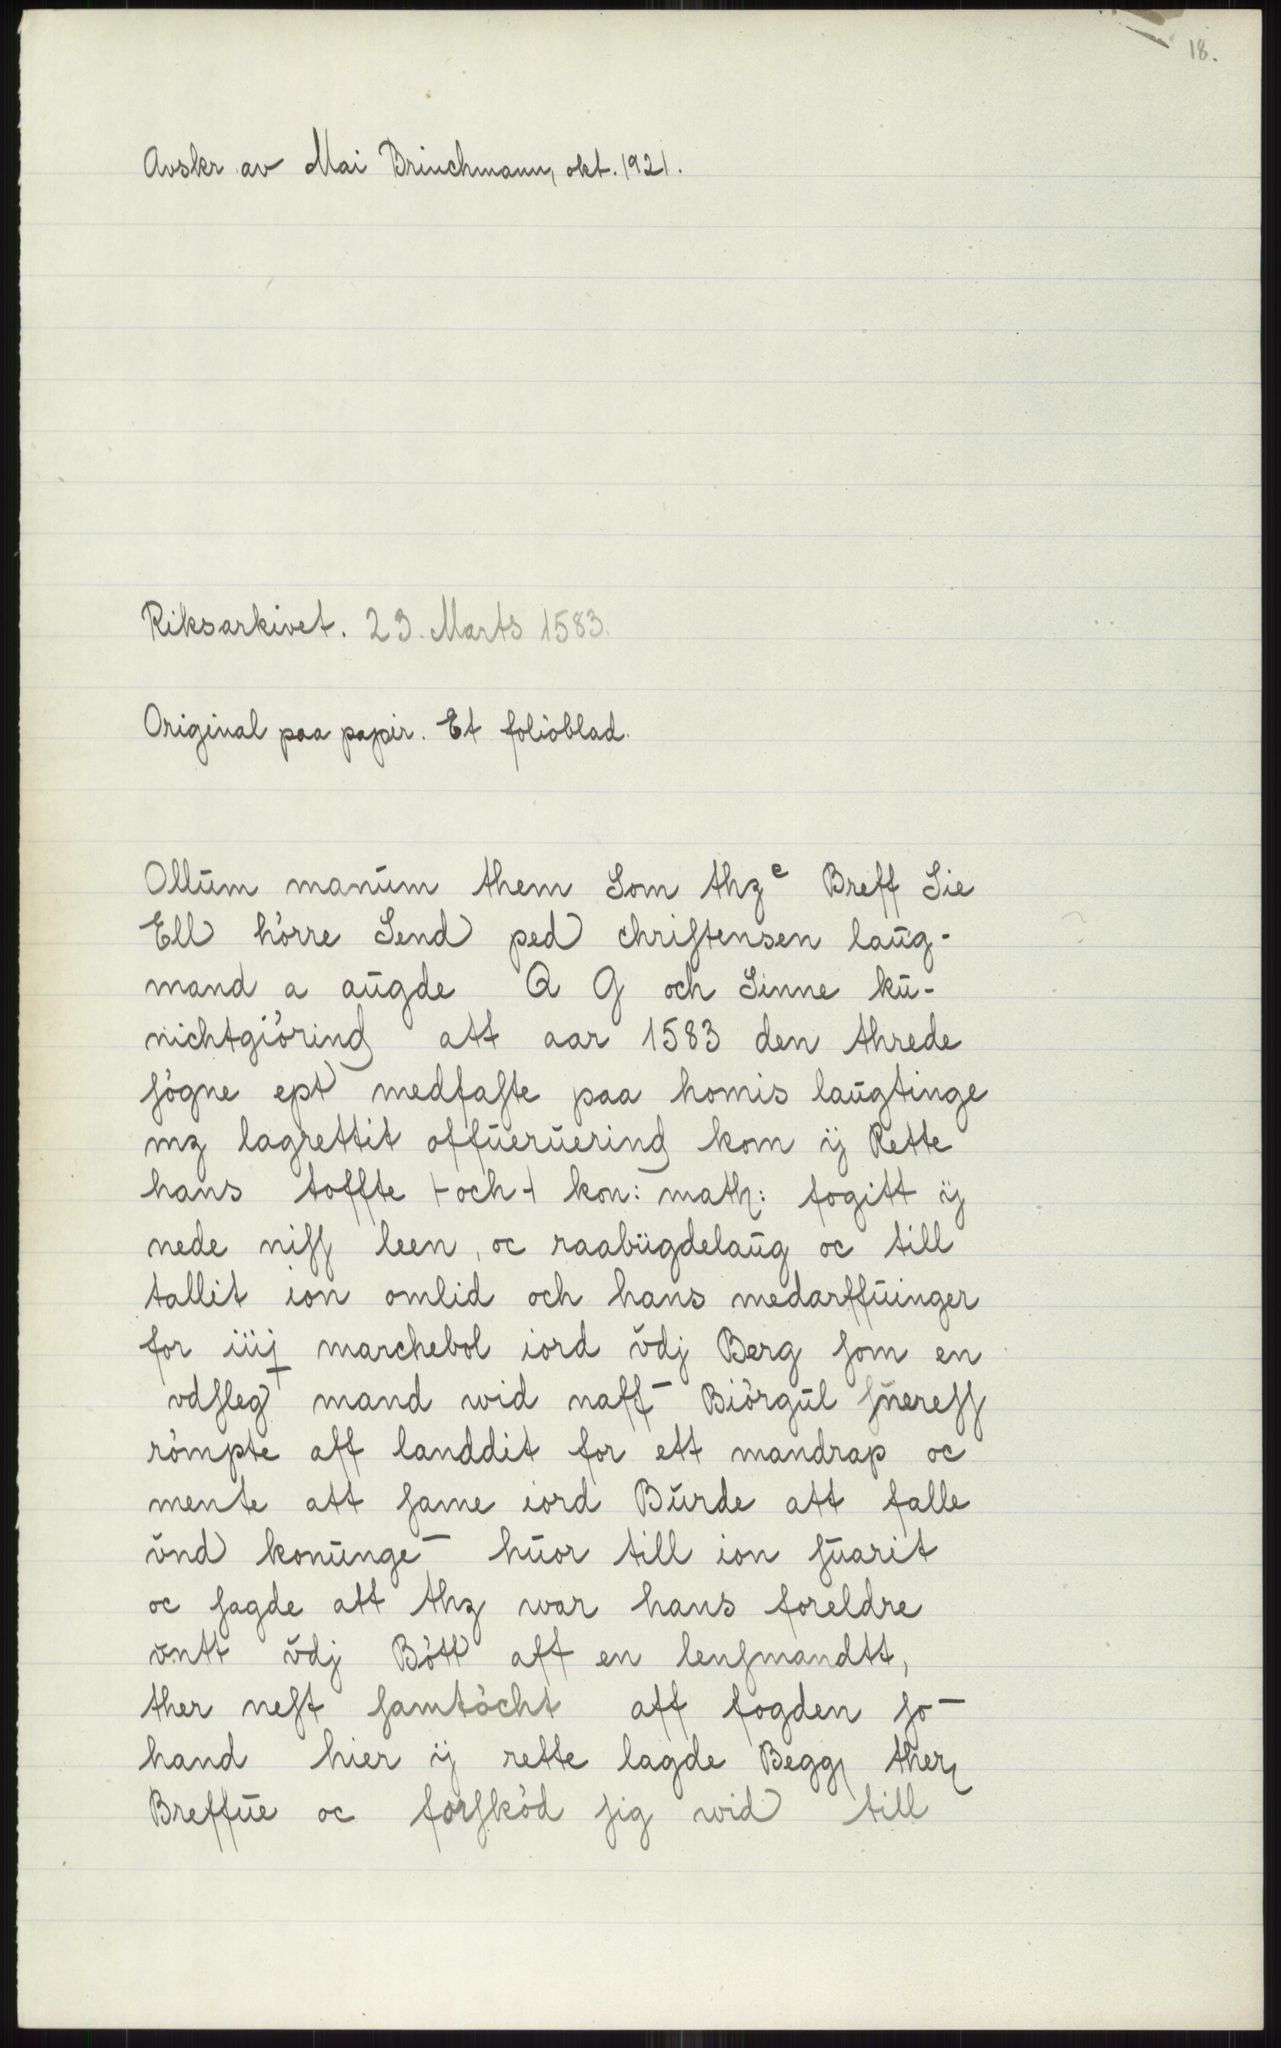 18.
Avskr. av Mai Brinchmann, okt. 1921.
Riksarkivet. 23. Marts 1583.
Original paa papir. Et folioblad.
Ollum manūm them Som thzᵉ Breff Sie
Ell hörre Send ped christensen laūg-
mand a aūgde Q G och Sinne kū-
nichtgiöring att aar 1583 den threde
sögne ept medfaste paa homis laūgtinge
mz lagrettit offūerūering kom ÿ Rette
hans toffte +och+ kon: math: fogitt ÿ
nede niss leen, oc raabügdelaūg oc till
tallit ion omlid och hans medarffūinger
for iiij marchebol iord ŭdj Berg som en
vdsleg mand wid naff- Biörgūl sūeress
römpte aff landdit for ett mandrap oc
mente att same iord Būrde att falle
ŭnd konūnge- hūor till ion sūarit
oc sagde att thz war hans foreldre
ŭntt ŭdj Bött aff en lensmandtt,
ther nest samtöcht aff fogden so-
hand hier ÿ rette lagde Begg ther
Breffūe oc forsköd sig wid till